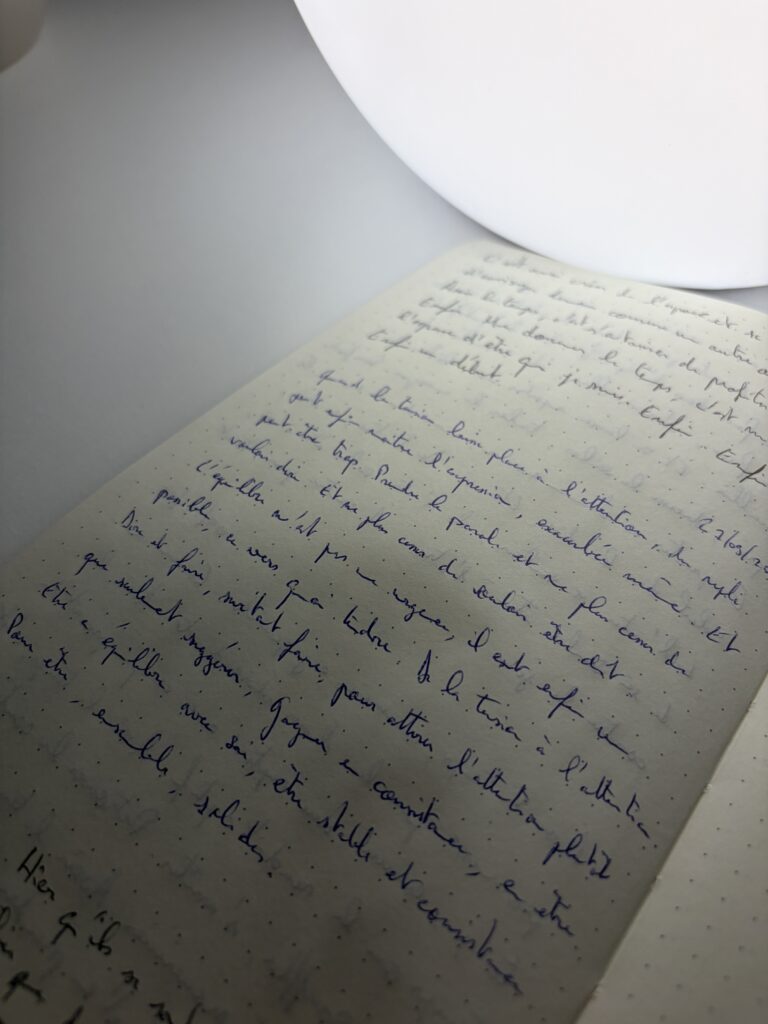 C'est aussi créer de l'espace et se
demain comme un autre
dans le temps, c'est s'autoriser de profiter
Enfin. Me donner le temps, c'est
l'espace d'être qui je suis. Enfin. Enfin
Enfin un début.
quand la tension laisse place à l'attention, du repli
peut enfin naître l'expression, exacerbée même. Et
peut être trop. Prendre la parole et ne plus cesser de
vouloir dire. Et ne plus cesser de vouloir être dit
L'équilibre n'est pas un , il est enfin un
possible, un vers quoi tendre. De la tension à l'attention.
Dire et faire, surtout faire, pour attirer l'attention plutôt
que seulement suggérer. Gagner en consistance, en être
Etre en équilibre avec soi, être stable et consistance
Pour être, ensemble, solides.
Hier qu'ils se sont
que